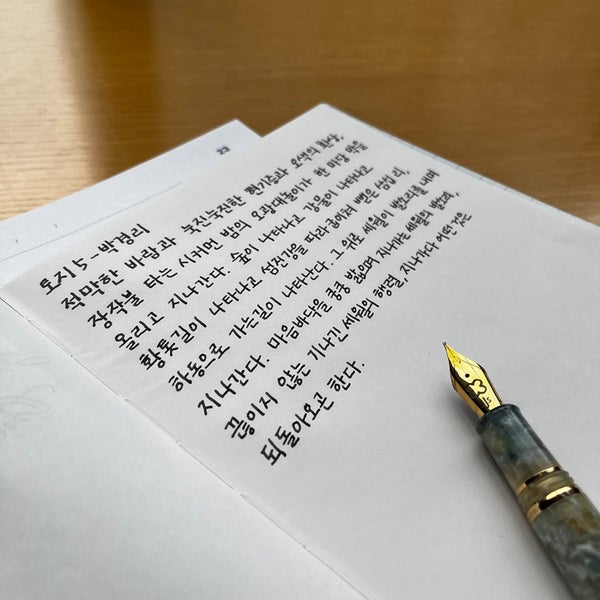 23
토지 5 - 박경리
적막한 바람과 녹진녹진한 현기증과 오색의 환상,
장작불 타는 시커먼 밤의 오광대놀이가 한 마당 막을
올리고 지나간다. 숲이 나타나고 강물이 나타나고
황톳길이 나타나고 섬진강을 따라 굽이쳐 뻗은 삼십 리,
하동으로 가는길이 나타난다. 그 위로 세월이 발소리를 내며
지나간다. 마음바닥을 쿵쿵 밟으며 지나가는 세월의 발소리,
끊이지 않는 기나긴 세월의 행렬, 지나가다 어떤 것은
되돌아오곤 한다.